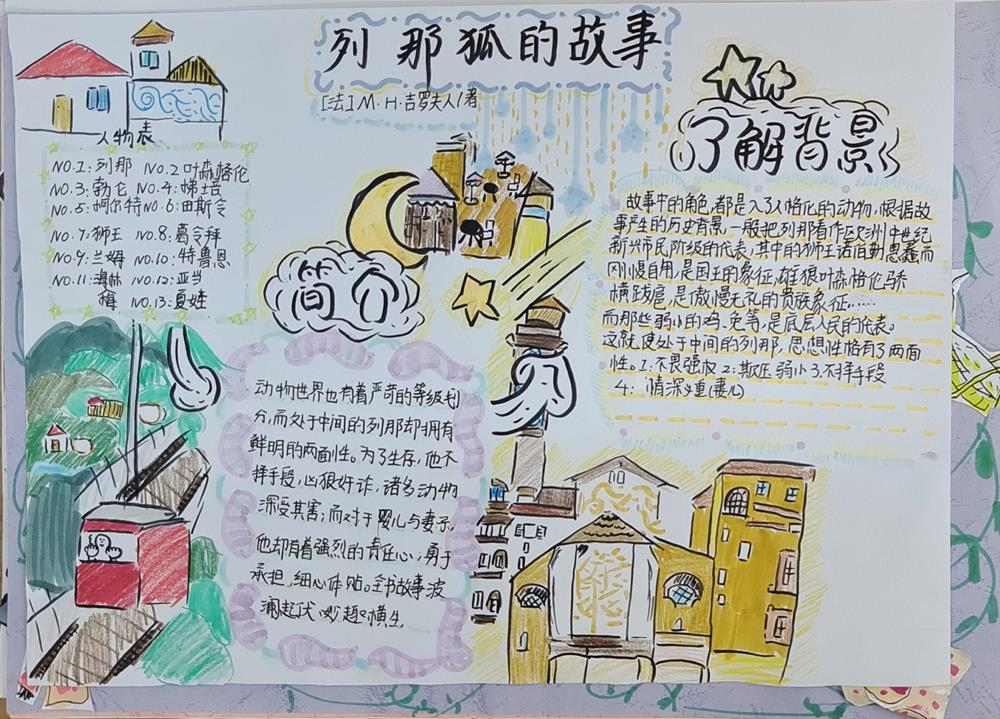 列那狐的故事
[法]M·H·吉罗夫人/著
人物表
NO.1:列那 NO.2叶森格伦
NO.3:勃仑 NO.4:梯培
NO.5:柯尔特NO.6:田斯令
NO.7:狮王 NO.8:葛令拜
NO.9:兰姆 NO.10:特鲁恩
NO.11:海林 NO.12:亚当
梅 NO.13:夏娃
简介
动物世界也有着严苛的等级划
分,而处于中间的列那却拥有
鲜明的两面性。为了生存,他不
择手段,凶狠奸诈,诸多动物
深受其害;而对于婴儿与妻子,
他却有着强烈的责任心,勇于
承担,细心体贴。全书故事波
澜起伏,妙趣横生.
了解背景
故事中的角色,都是入了人格化的动物,根据故
事产生的历史背景,一般把列那看作欧洲中世纪
新兴市民阶级的代表,其中的狮王诺伯勒愚蠢而
刚愎自用,是国王的象征,雄狼叶森格伦骄
横跋扈,是傲慢无礼的贵族象征……
而那些弱小的鸡、兔等,是底层人民的代表。
这就使处于中间的列那,思想性格有了两面
性。1.不畏强权 2:欺压弱小 3.不择手段
4:情深义重(妻儿)